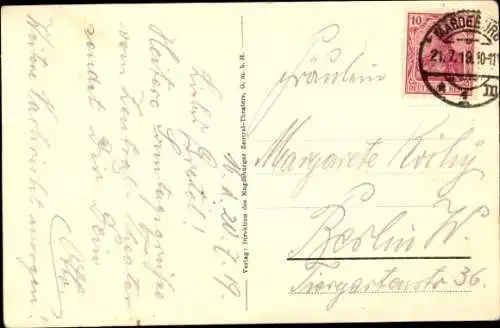 M. d. 20.7.19.
Liebe Gretel!
Heitere Sonntagsgrüße
vom Zentral-Theater
sendet Dir Dein
Otto
Weitere Nachricht morgen!
Verlag: Direktion des Magdeburger Zentral-Theaters, G. m. b. H.
MAGDEBURG
21.7.19. 10-11V
10
Fräulein
Margarete
Berlin W.
Tiergartenstr 36.